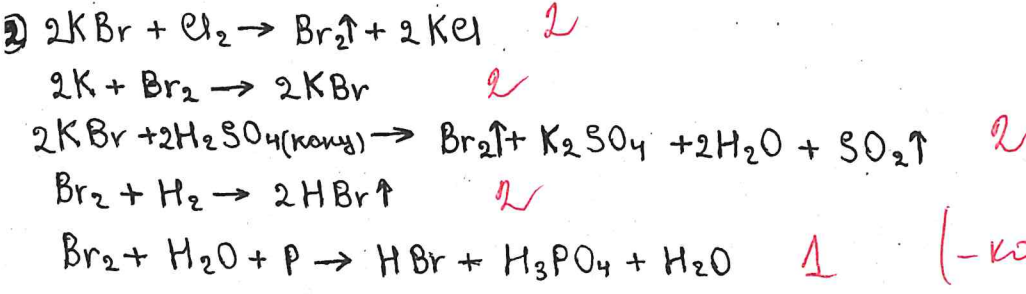 2) 2KBr + Cl₂ → Br₂↑ + 2KCl 2
2K + Br₂ → 2KBr 2
2KBr + 2H₂SO₄(конц) → Br₂↑ + K₂SO₄ + 2H₂O + SO₂↑ 2
Br₂ + H₂ → 2HBr↑ 2
Br₂ + H₂O + P → HBr + H₃PO₄ + H₂O 1